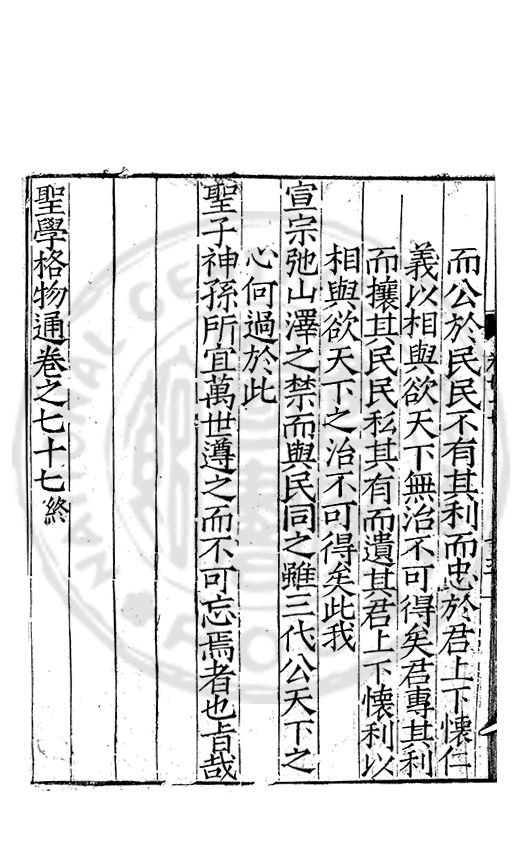 而公於民民不有其利而忠於君上下懷仁
義以相與欲天下無治不可得矣君專其利
而攘其民民私其有而遺其君上下懷利以
相與欲天下之治不可得矣此我
宣宗弛山澤之禁而與民同之雖三代公天下之
心何過於此
聖子神孫所宜萬世遵之而不可忘焉者也旨哉
聖學格物通卷之七十七終